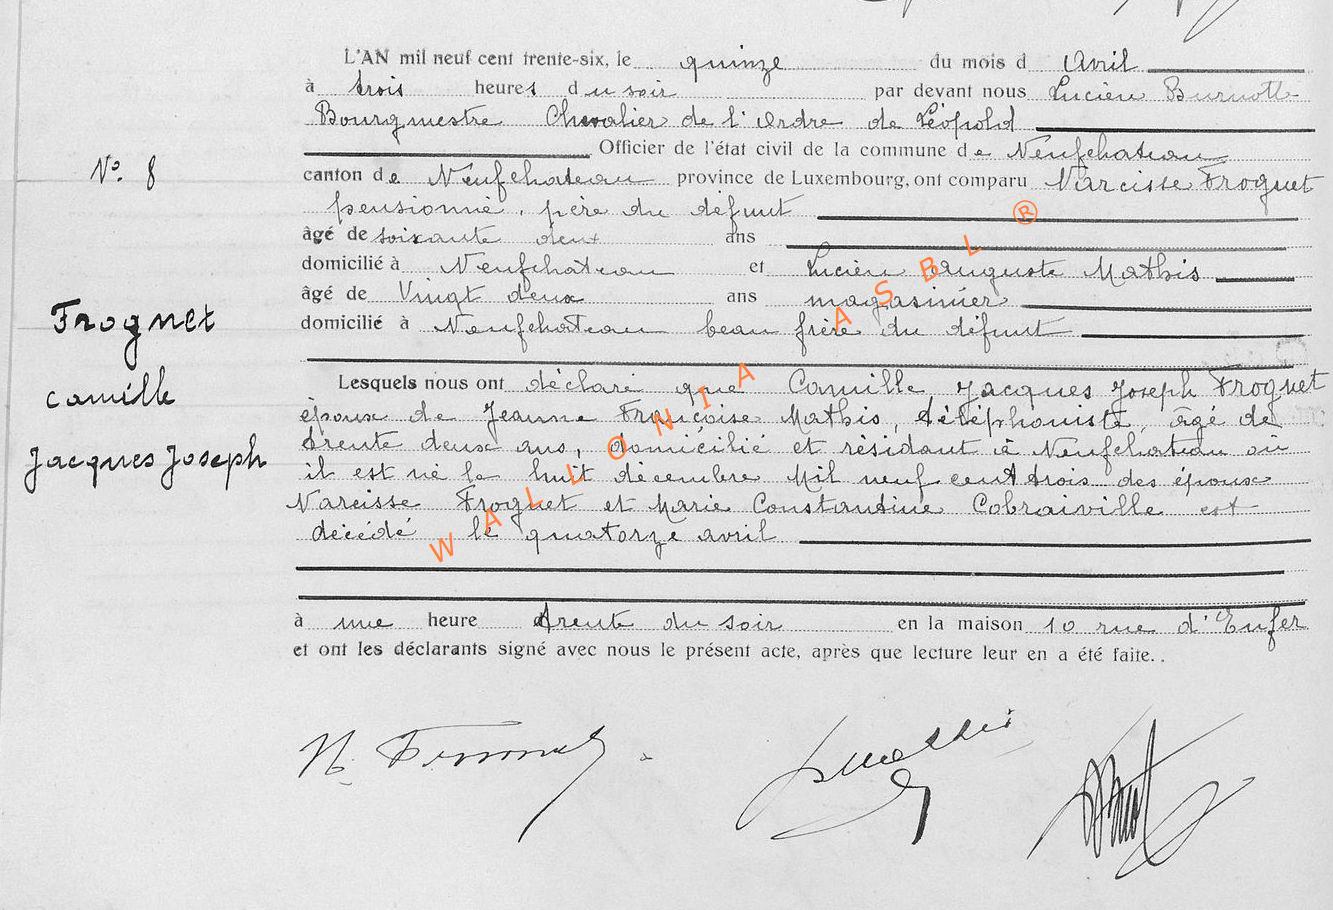 L'AN mil neuf cent trente-six, le quinze du mois d Avril
à trois heures du soir par devant nous Lucien Burnotte
Bourgmestre Chevalier de l'Ordre de Léopold
Officier de l'état civil de la commune de Neufchateau
N°. 8
canton de Neufchateau province de Luxembourg, ont comparu Narcisse Frognet
pensionné, père du défunt
âgé de soixante deux ans
domicilié à Neufchateau et Lucien Auguste Mathis
âgé de Vingt deux ans magasinier
domicilié à Neufchateau beau frère du défunt
Frognet
Camille
Jacques Joseph
Lesquels nous ont déclaré que Camille Jacques Joseph Frognet
époux de Jeanne Françoise Mathis, téléphoniste, âgé de
trente deux ans, domicilié et résidant à Neufchateau où
il est né le huit décembre Mil neuf cent trois des époux
Narcisse Frognet et Marie Constantine Cobraiville est
décédé le quatorze avril
à une heure trente du soir en la maison 10 rue d'Enfer
et ont les déclarants signé avec nous le présent acte, après que lecture leur en a été faite..
WALLONIA ASBL ®
N. Frognet